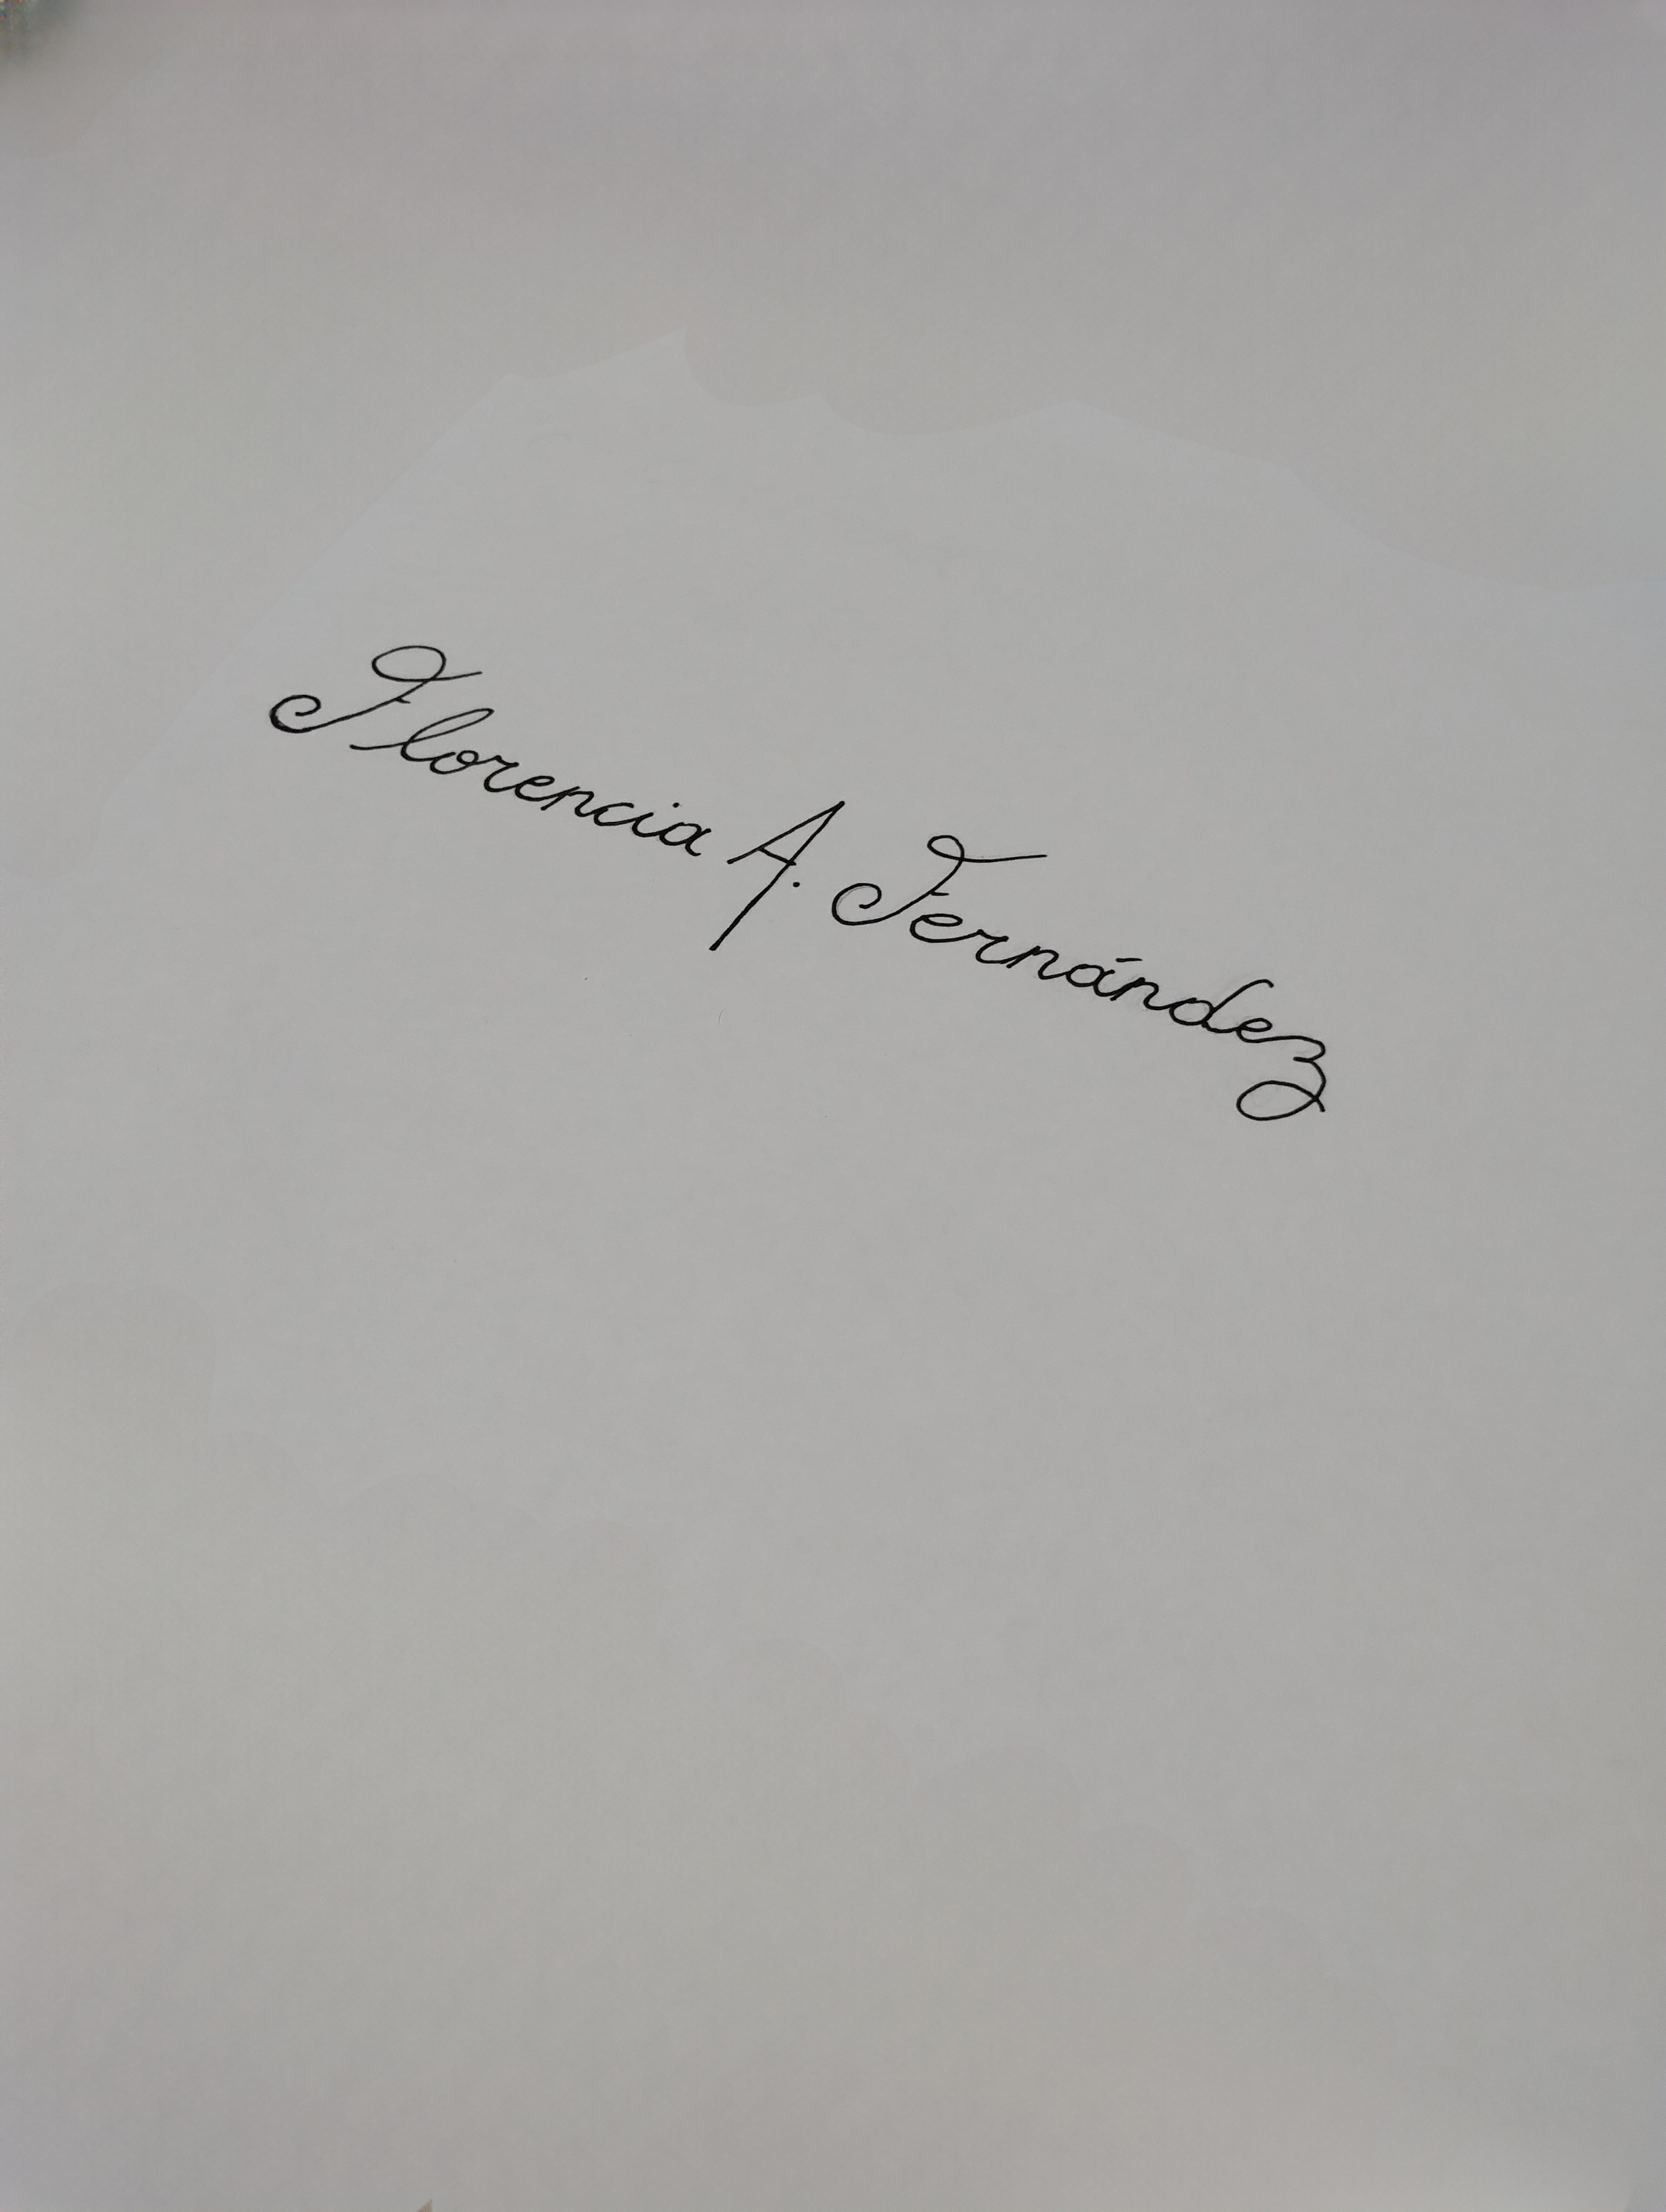 Florencia A. Fernández